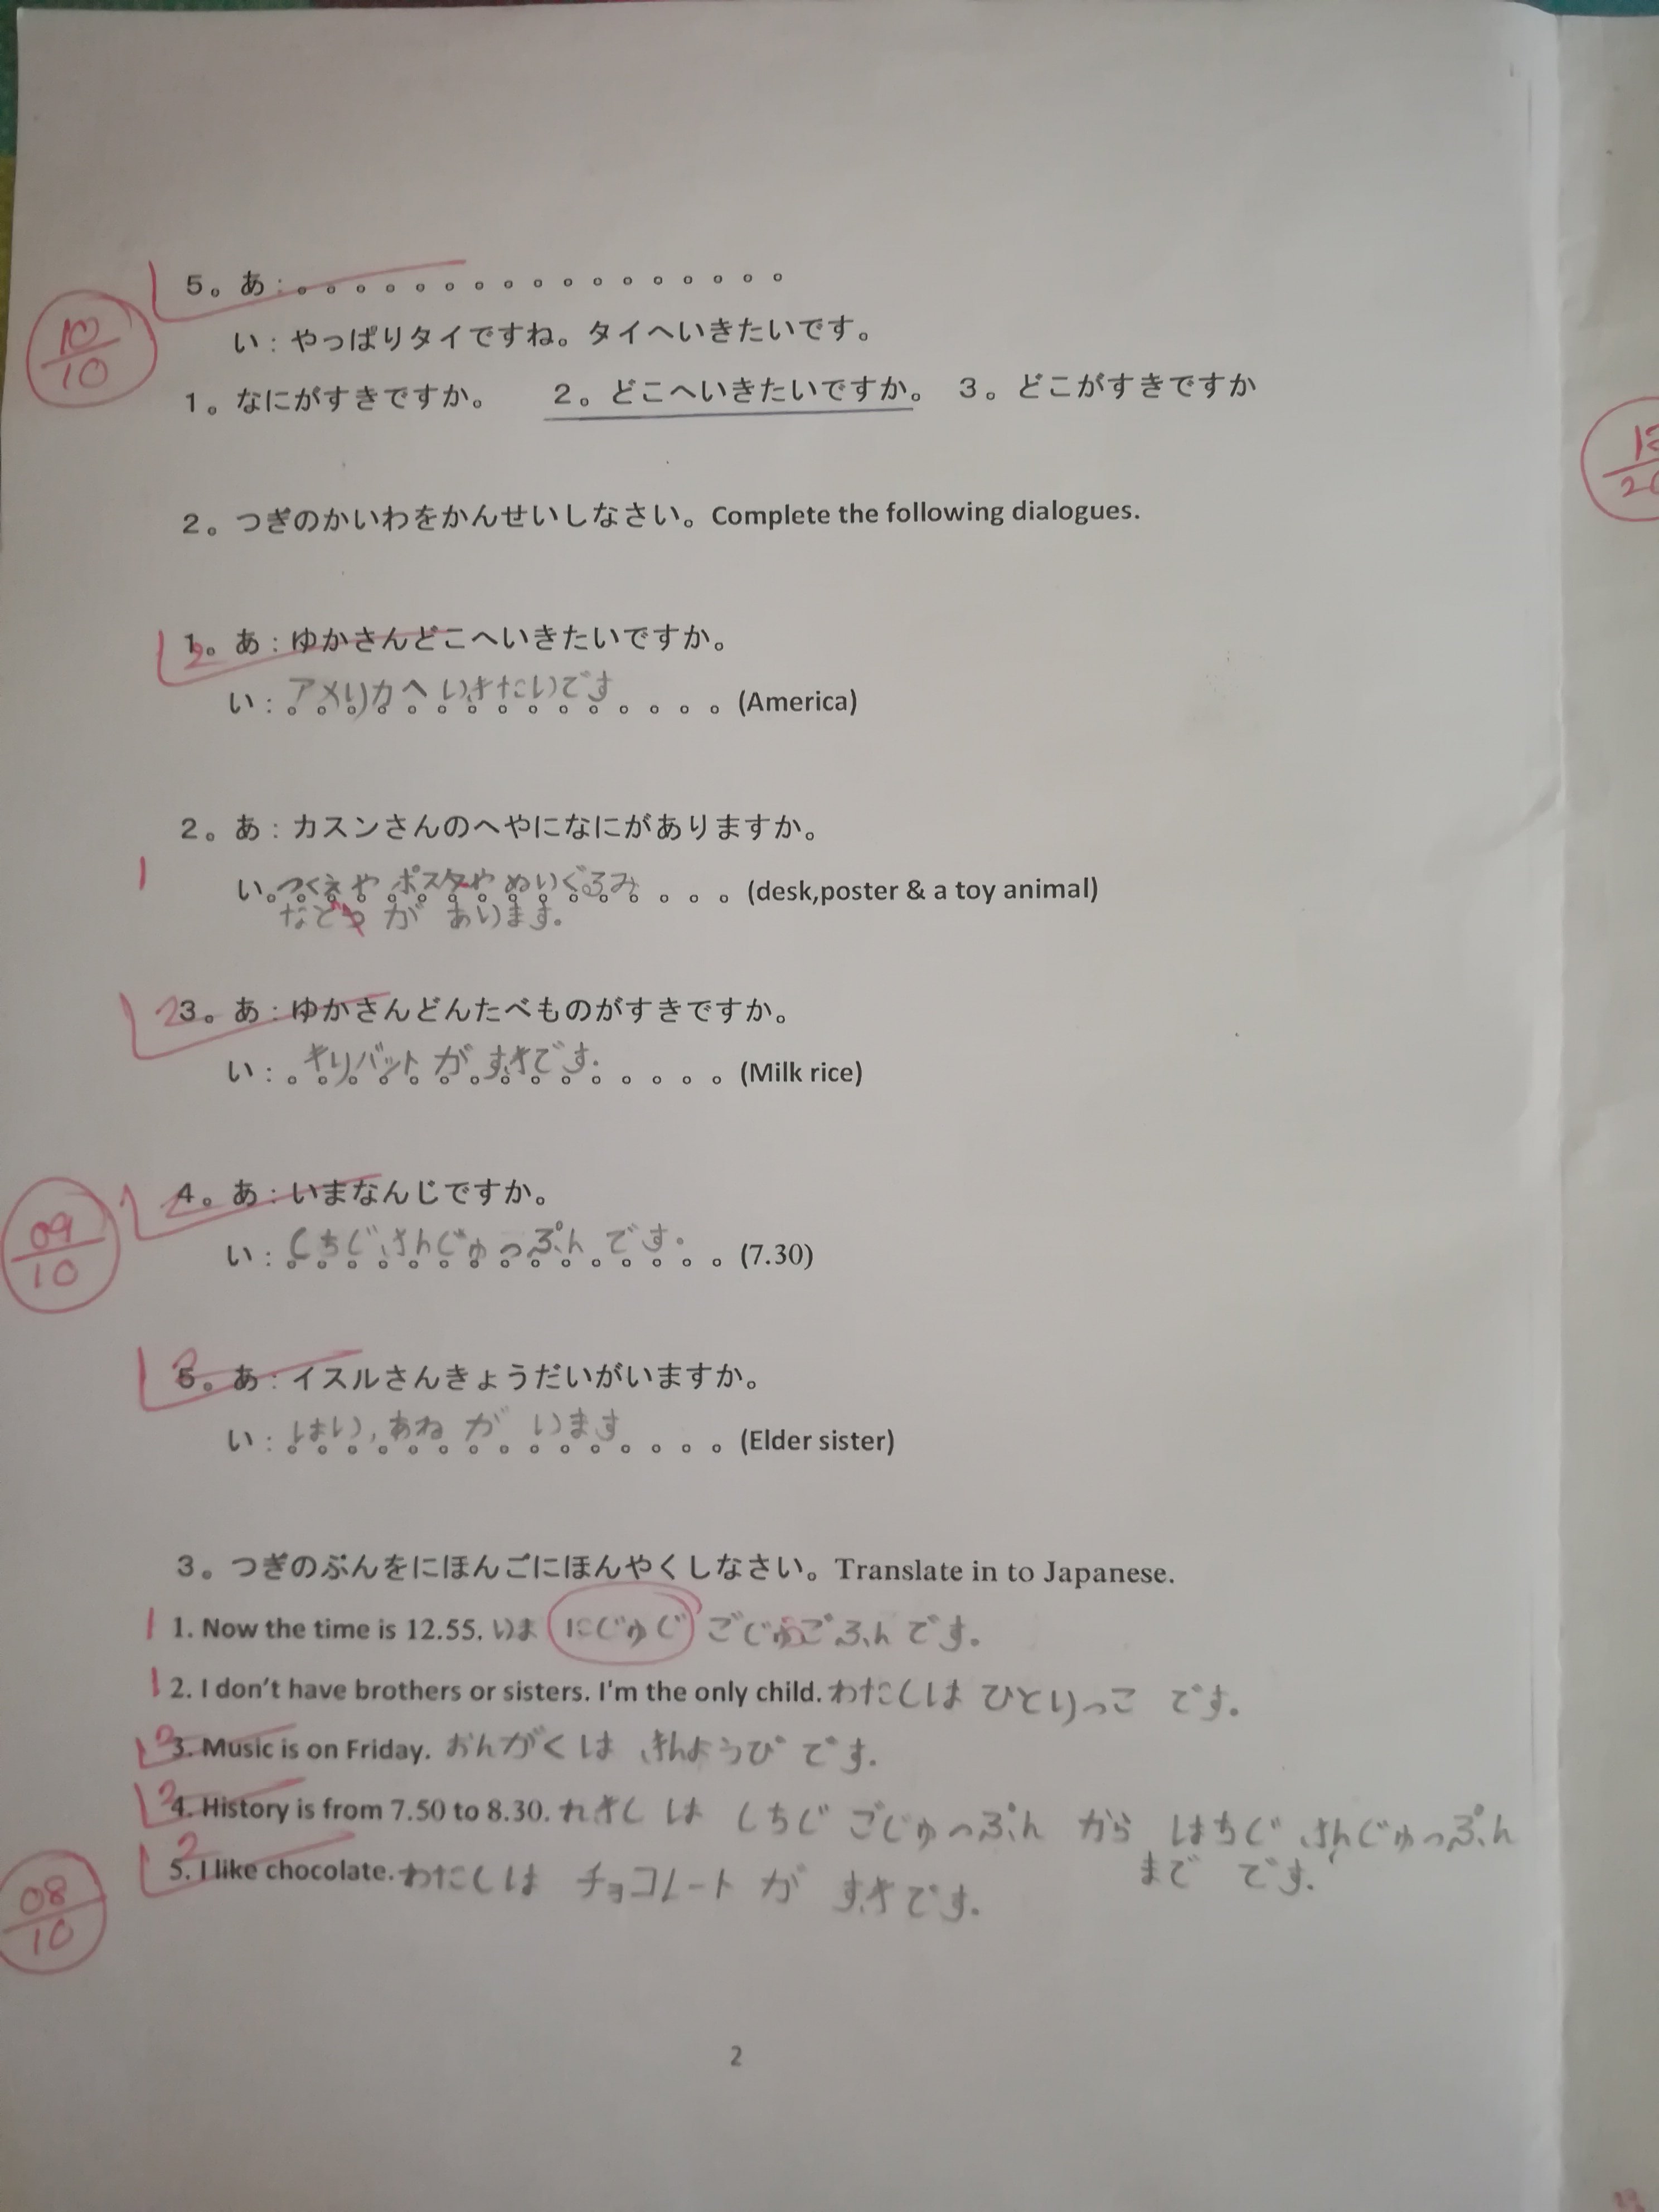 5。あ:。。。。。。。。。。。。。。。。。
10/10
い:やっぱりタイですね。タイへいきたいです。
1。なにがすきですか。 2。どこへいきたいですか。 3。どこがすきですか
2。つぎのかいわをかんせいしなさい。Complete the following dialogues.
2
1。あ:ゆかさんどこへいきたいですか。
い:アメリカへ いきたいです。。。。(America)
2。あ:カスンさんのへやになにがありますか。
1
い。つくえや ポスターや ぬいぐるみ。。。(desk,poster & a toy animal)
などが あります。
2
3。あ:ゆかさんどんたべものがすきですか。
い:キリバット が すきです。。。。。(Milk rice)
2
4。あ:いまなんじですか。
09/10
い:しちじ さんじゅっぷん です。。。(7.30)
2
5。あ:イスルさんきょうだいがいますか。
い:はい, あね が います。。。。(Elder sister)
3。つぎのぶんをにほんごにほんやくしなさい。Translate in to Japanese.
1 1. Now the time is 12.55. いま にじゅじ ごじゅうごふん です。
1 2. I don't have brothers or sisters. I'm the only child. わたしは ひとりっこ です。
2 3. Music is on Friday. おんがく は きんようび です.
2 4. History is from 7.50 to 8.30. れきし は しちじ ごじゅっぷん から はちじ さんじゅっぷん
まで です.
2 5. I like chocolate. わたしは チョコレート が すきです.
08/10
2